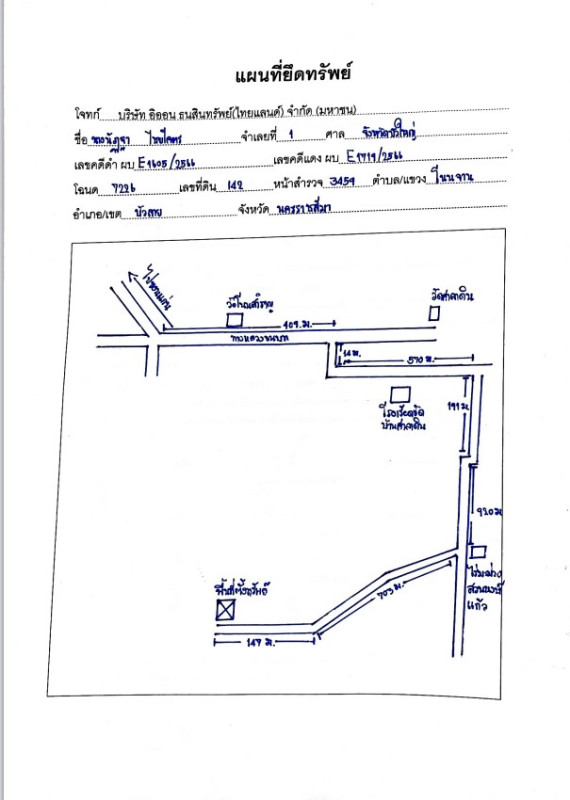 แผนที่ยึดทรัพย์
โจทก์ บริษัท อิออน ธนสินทรัพย์(ไทยแลนด์) จำกัด (มหาชน)
ชื่อ จำเลยที่ 1 ศาล จังหวัดบัวใหญ่
เลขคดีดำ ผบ E1605/2566 เลขคดีแดง ผบ E1719/2566
โฉนด 7226 เลขที่ดิน 142 หน้าสำรวจ 3459 ตำบล/แขวง โนนจาน
อำเภอ/เขต บัวลาย จังหวัด นครราชสีมา
ไปขอนแก่น
วัดโนนสำราญ
วัดศาลาดิน
409 ม.
ทางหลวงชนบท
14 ม.
570 ม.
โรงเรียนวัด
บ้านศาลาดิน
191 ม
930 ม
ไร่มะม่วง
แก้ว
703 ม.
พื้นที่ตั้งทรัพย์
147 ม.